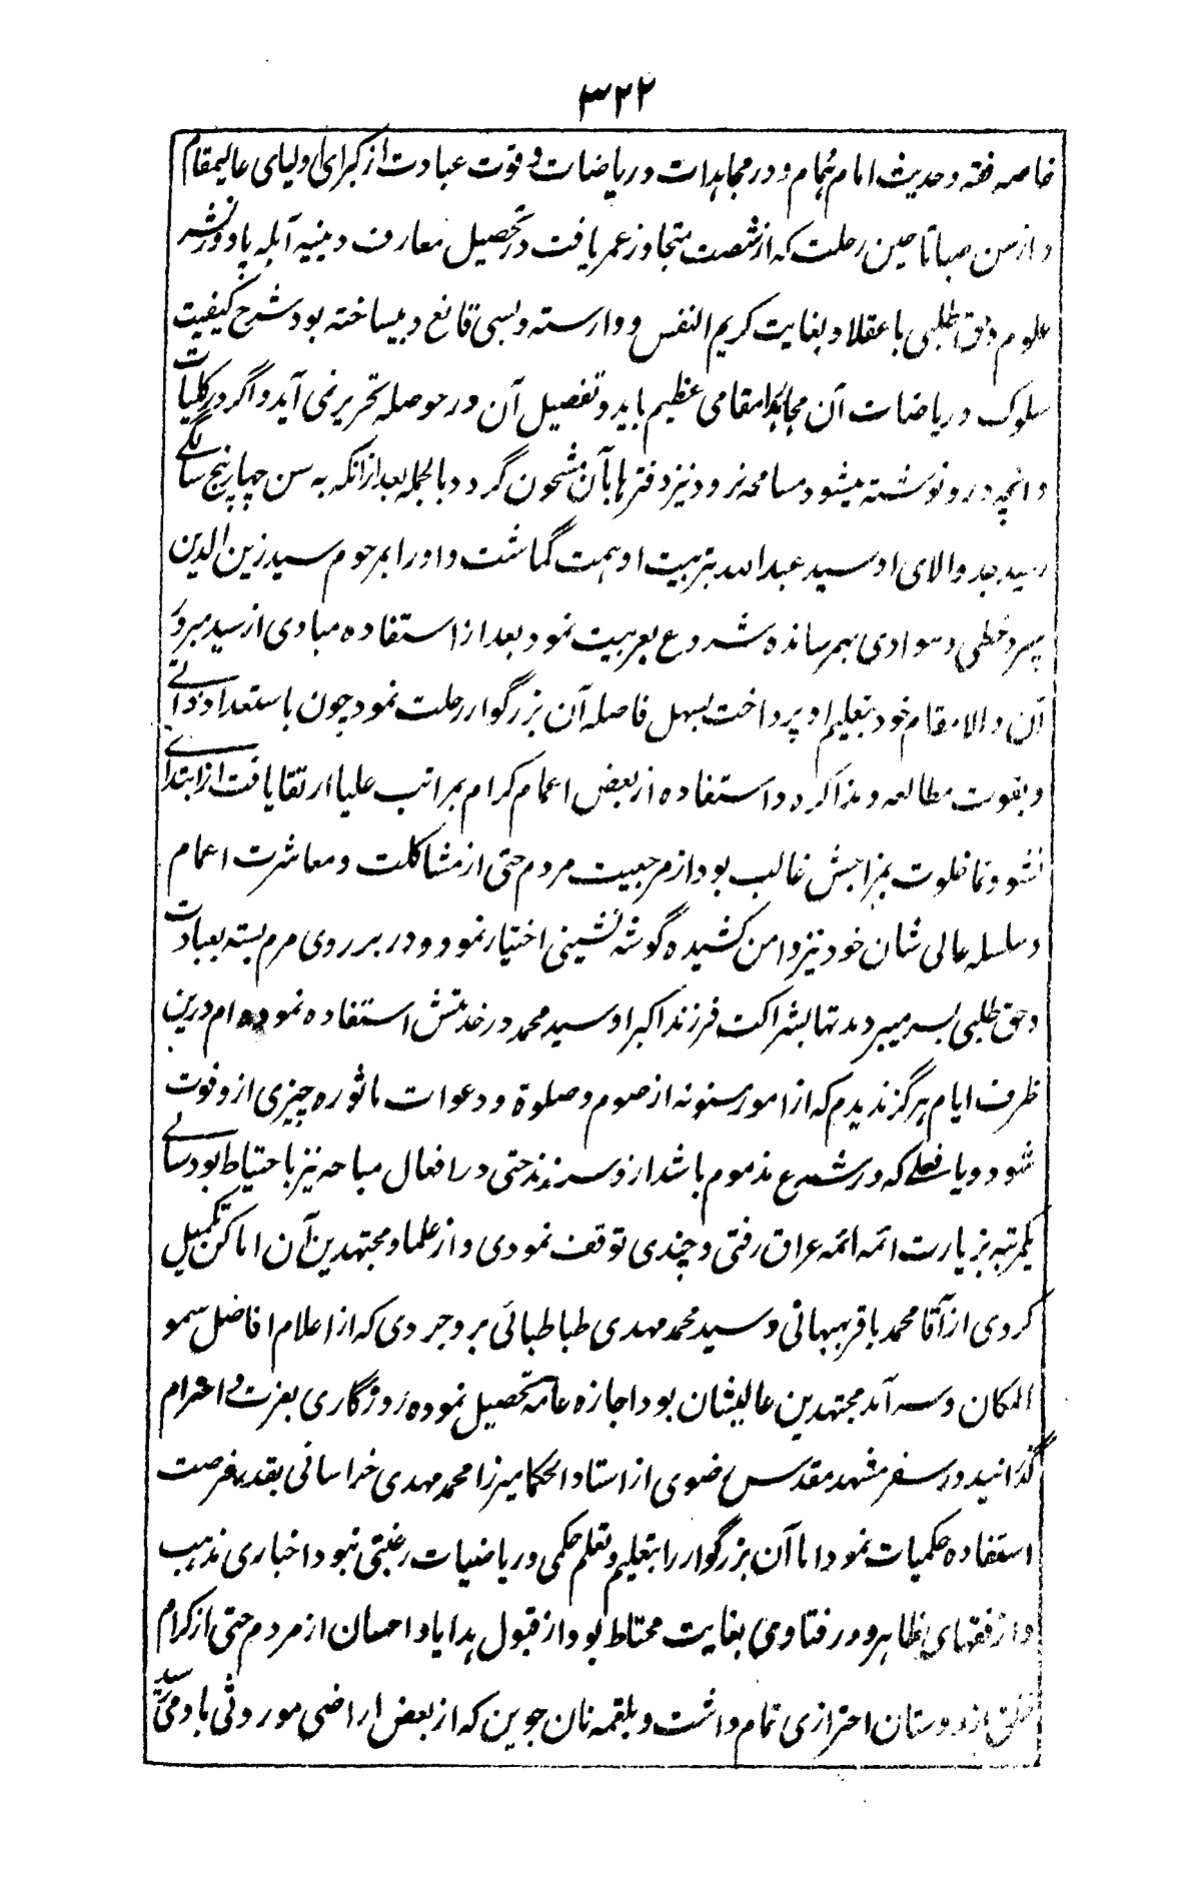 ۳۲۲
خاصه فقه و حدیث امام همام و در مجاهدات و ریاضات و قوت عبادت از کبرای اولیای عالیمقام
و از سن صبا تا حین رحلت که از شصت متجاوز عمر یافت در تحصیل معارف دینیه آبله پا و در نشر
علوم و حق طلبی با عقلا و بغایت کریم النفس و وارسته و بسی قانع و بیساخته بود شرح کیفیت
سلوک و ریاضات آن مجاهد را مقامی عظیم باید و تفصیل آن در حوصله تحریر نمی آید و اگر در کلیات
و انچه در و نوشته میشود مسامحه نرود نیز دفترها بآن مشحون گردد بالجمله بعد از انکه به سن چهار پنج سالگے
رسید جد والای او سید عبدالله بتربیت او همت گماشت و او را بمرحوم سید زین الدین
سپرد خطی و سوادی بهمرسانده شروع بعربیت نمود بعد از استفاده مبادی از سید مبرور
آن والامقام خود بتعلیم او پرداخت بسهل فاصله آن بزرگوار رحلت نمود چون باستعداد ذاتے
و بقوت مطالعه و مذاکره و استفاده از بعض اعمام کرام بمراتب علیا ارتقا یافت از ابتدای
نشو و نما خلوت بمزاجش غالب بود از مرجعیت مردم حتی از مشاکلت و معاشرت اعمام
و سلسله عالی شان خود نیز دامن کشیده گوشه نشینی اختیار نمود و در بر روی مردم بسته بعبادت
و حق طلبی بسر میبرد مدتها بشراکت فرزند اکبر او سید محمد در خدمتش استفاده نموده ام درین
ظرف ایام هرگز ندیدم که از امور مسنونه از صوم و صلوة و دعوات ماثوره چیزی از و فوت
شود و یا فعلے که در شرع مذموم باشد از و سرزند حتی در افعال مباحه نیز با احتیاط بود سالے
یکمرتبه بزیارت ائمه ائمه عراق رفتی و چندی توقف نمودی و از علما و مجتهدین آن اماکن تکمیل
کردی از آقا محمد باقر بهبهانی و سید محمد مهدی طباطبائی بروجردی که از اعلام افاضل سمو
المکان و سرآمد مجتهدین عالیشان بود اجازه عامه تحصیل نموده روزگاری بعزت و احترام
گذرانید و در سفر مشهد مقدس رضوی از استاد الحکما میرزا محمد مهدی خراسانی بقدر فرصت
استفاده حکمیات نمود اما آن بزرگوار را بتعلیم و تعلم حکمی و ریاضیات رغبتی نبود اخباری مذهب
و از فقهای ظاهر و در فتاوی بغایت محتاط بود از قبول هدایا و احسان از مردم حتی از کرام
خلق از دوستان احترازی تمام داشت و بلقمه نان جوین که از بعض اراضی موروثی باو میرسید